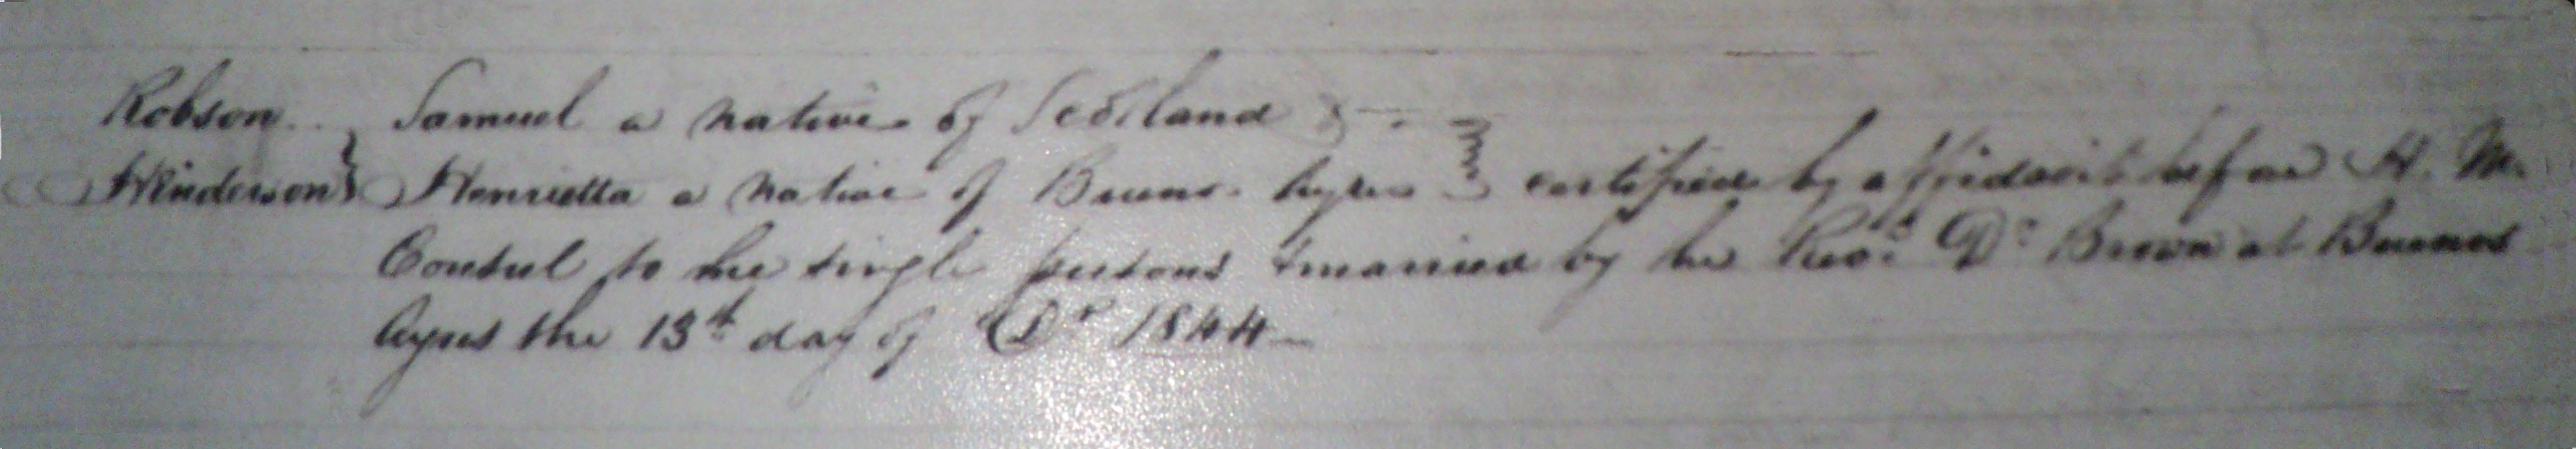 Robson.. Samuel a native of Scotland &
Henderson Henrietta a native of Buenos Ayres certified by affidavit before H. M.
Consul to be single persons & married by the Revd. Dr. Brown at Buenos
Ayres the 13th day of Dr 1844 –